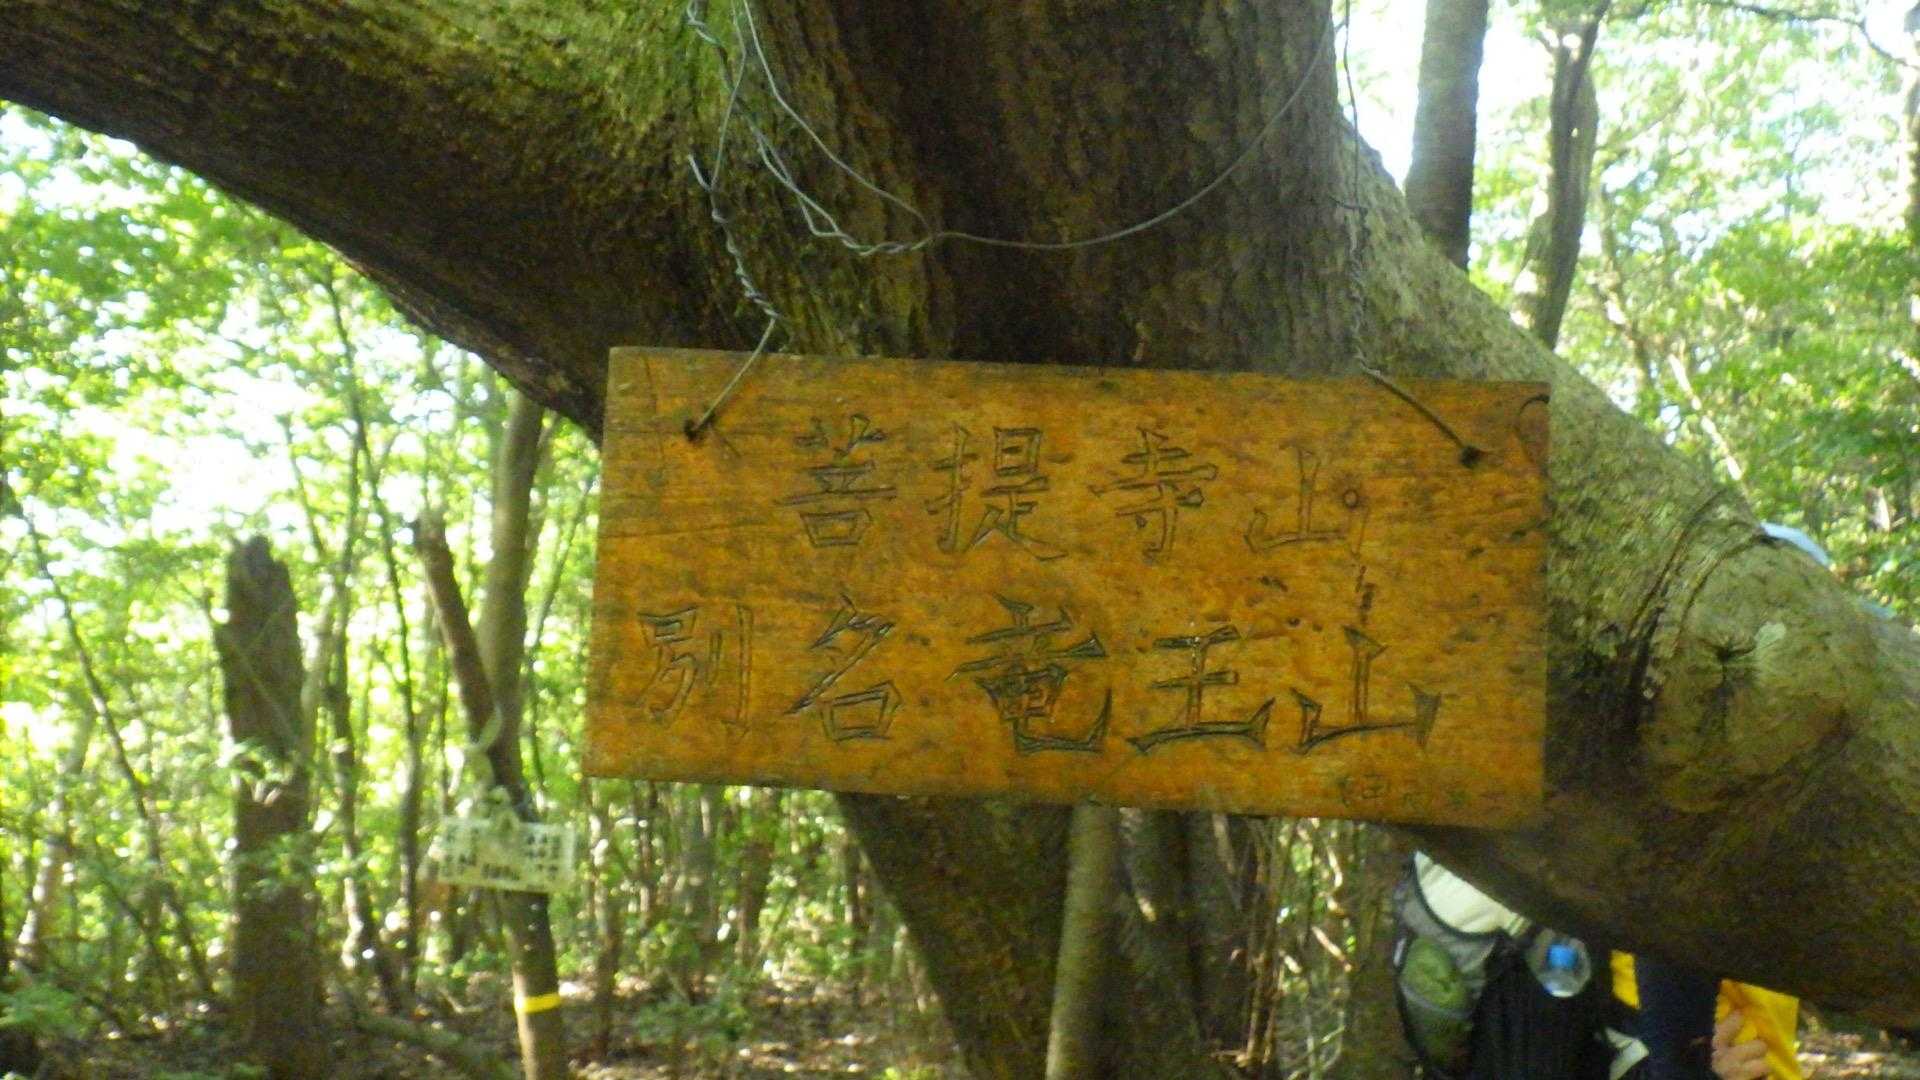 菩提寺山
別名竜王山